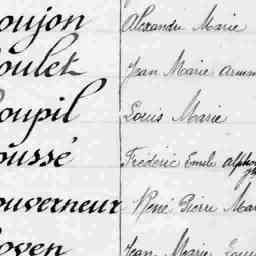 oujon Alexandre Marie
oulet Jean Marie
oupil Louis Marie
oussé Frédéric Emile
ouverneur René Pierre Mar
oyen Jean Marie